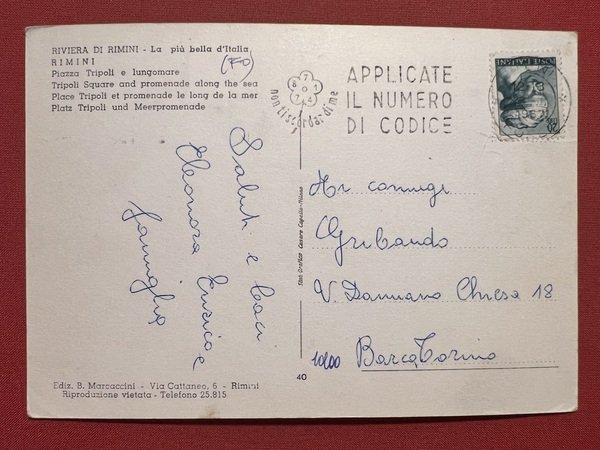 RIVIERA DI RIMINI - La più bella d'Italia
RIMINI
(FO)
Piazza Tripoli e lungomare
Tripoli Square and promenade along the sea
Place Tripoli et promenade le long de la mer
Platz Tripoli und Meerpromenade
non ti scordar di me
APPLICATE
IL NUMERO
DI CODICE
POSTE ITALIANE
Saluti e baci
Eleonora Enrico e
famiglia
Stab. Grafico Cesare Capello - Milano
Ai coniugi
Gribaudo
V. Damiano Chiesa 18
10100 Barca Torino
Ediz. B. Marcaccini - Via Cattaneo, 6 - Rimini
Riproduzione vietata - Telefono 25.815
40